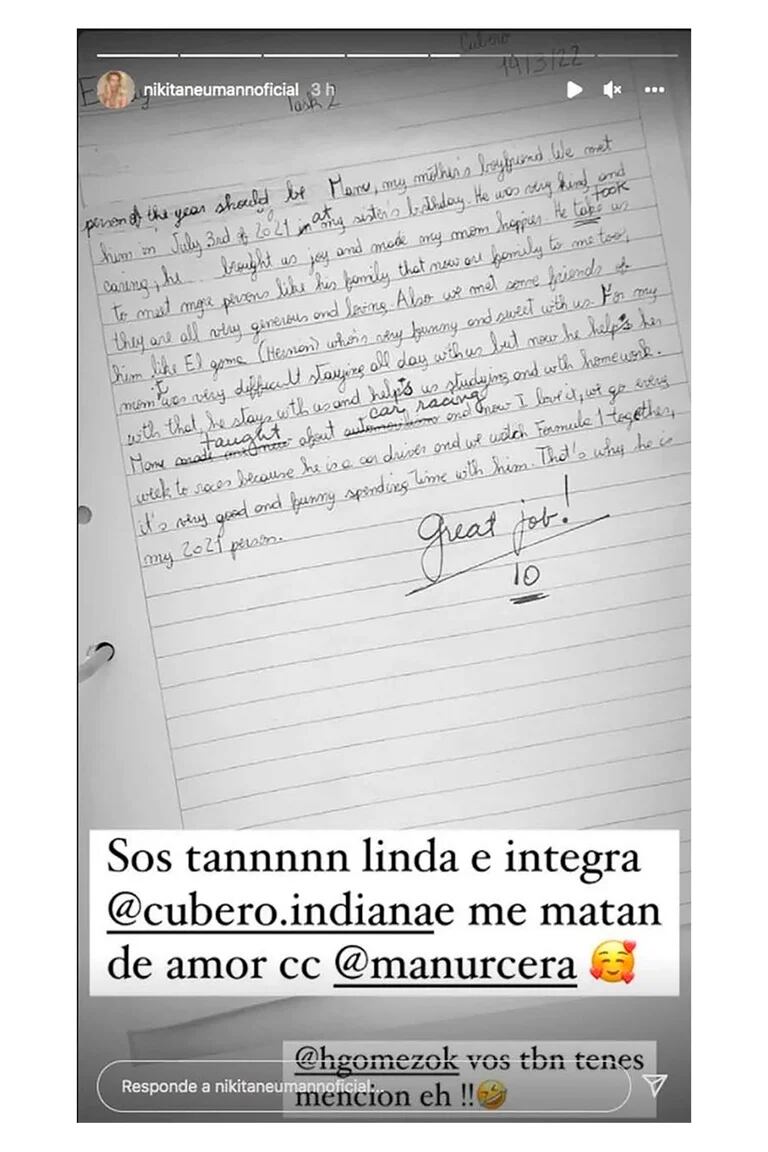 Cubero
14/3/22
nikitaneumannoficial 3 h
Task 2
person of the year should be Manu, my mother's boyfriend. We met
him in July 3rd of 2021 in at my sister's bithday. He was very kind and
caring, he brought us joy and made my mom happier. He take took us
to meet more persons like his family that now are family to me too,
they are all very generous and loving. Also we met some friends of
him like El gome (Hernan) who's very funny and sweet with us. For my
mom it was very difficult staying all day with us but now he help's her
with that, he stays with us and help's us studying and with homework.
Manu taught about car racing and now I love it, we go every
week to races because he is a car driver and we watch Formula 1 together,
it's very good and funny spending time with him. That's why he is
my 2021 person.
Great job!
10
Sos tannnnn linda e integra
@cubero.indianae me matan
de amor cc @manurcera 🥰
@hgomezok vos tbn tenes
mencion eh !!🤣
Responde a nikitaneumannoficial...